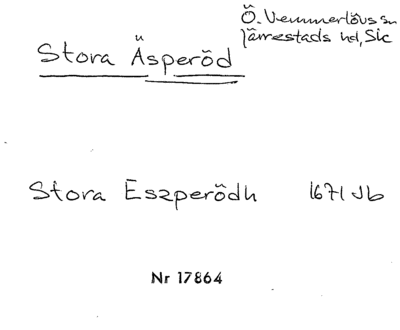 Ö. Vemmerlövs sn
Järrestads hd, Sk
Stora Äsperöd
Stora Eszperödh 1671 Jb
Nr 17864